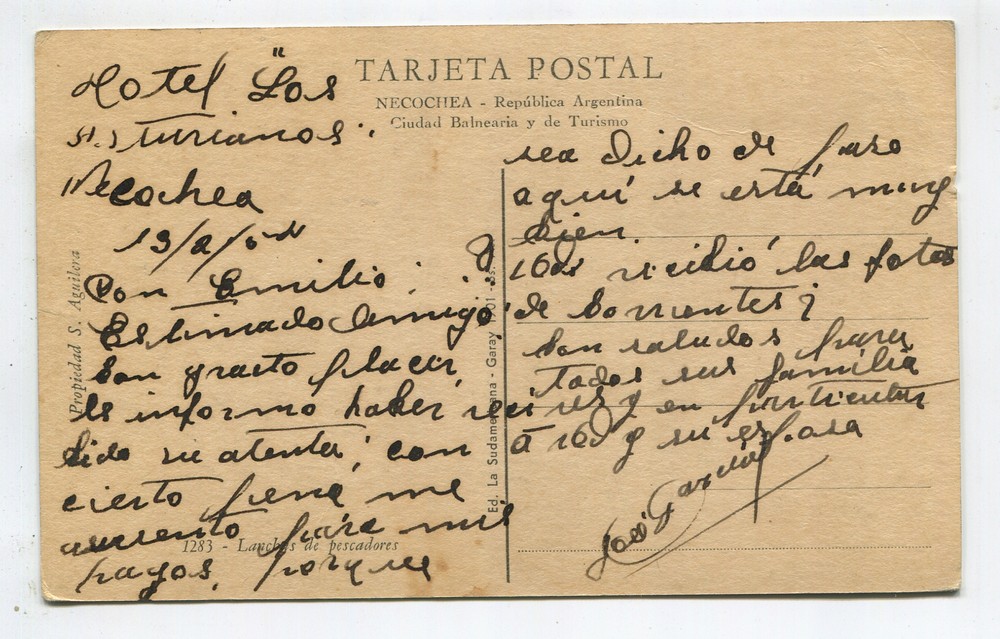 TARJETA POSTAL
NECOCHEA - República Argentina
Ciudad Balnearia y de Turismo
Hotel "Los
Asturianos.
Necochea
Don Emilio:
Estimado Amigo:
Con grato placer,
le informo haber reci
bido su atenta; con
cierto pena me
ausento para mis
pagos, porque
sea dicho de paso
aquí se está muy
bien.
recibió las fotos
de Corrientes?
Con saludos para
todos sus familia
res y en particular
a Ud y su esposa
José García
Propiedad S. Aguilera
Ed. La Sudamericana - Garay - Bs.
1283 - Lanchas de pescadores